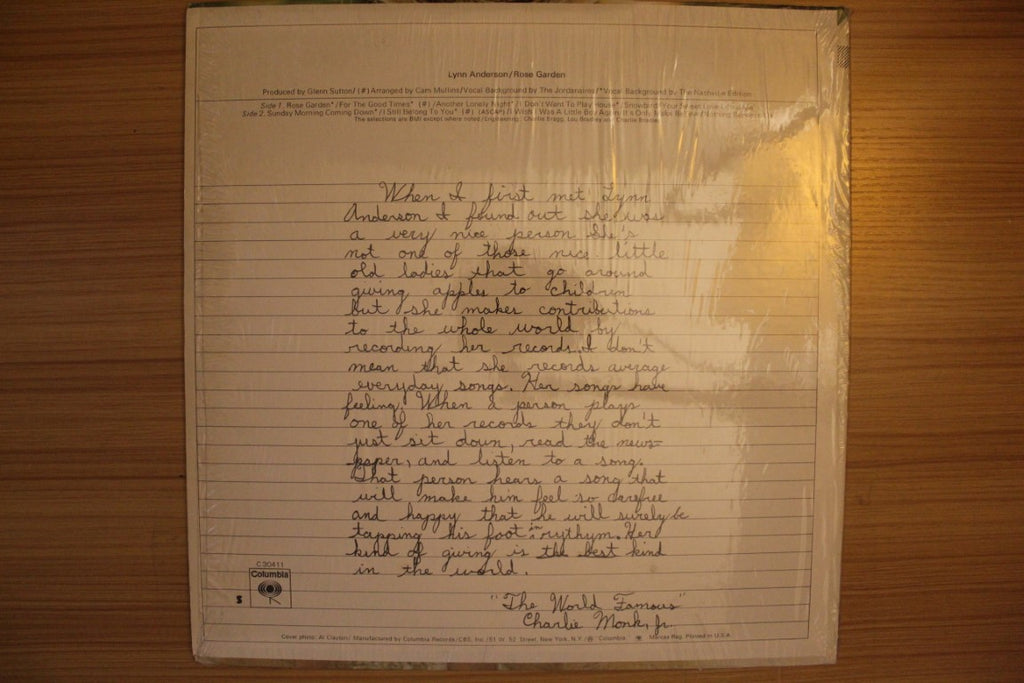 Lynn Anderson/Rose Garden
Produced by Glenn Sutton/(#) Arranged by Cam Mullins/Vocal Background by The Jordanaires/*Vocal Background by The Nashville Edition
Side 1. Rose Garden*/For The Good Times* (#)/Another Lonely Night*/I Don't Want To Play House*/Snowbird/Your Sweet Love Lifts Me
Side 2. Sunday Morning Coming Down*/I Still Belong To You* (#) (ASCAP)/I Wish I Was A Little Boy Again/It's Only Make Believe/Nothing Between Us
The selections are BMI except where noted/Engineering: Charlie Bragg, Lou Bradley and Charlie
When I first met Lynn
Anderson I found out she was
a very nice person She's
not one of those nice little
old ladies that go around
giving apples to children
but she makes contributions
to the whole world by
recording her records. I don't
mean that she records average
everyday songs. Her songs have
feeling. When a person plays
one of her records they don't
just sit down, read the news-
paper, and listen to a song.
That person hears a song that
will make him feel so carefree
and happy that he will surely be
tapping his foot in rythym. Her
kind of giving is the best kind
in the world.
"The World Famous"
Charlie Monk, Jr.
C 30411
Columbia
S
Cover photo: Al Clayton/Manufactured by Columbia Records/CBS, Inc./51 W. 52 Street, New York, N.Y./® Columbia, Marcas Reg. Printed in U.S.A.